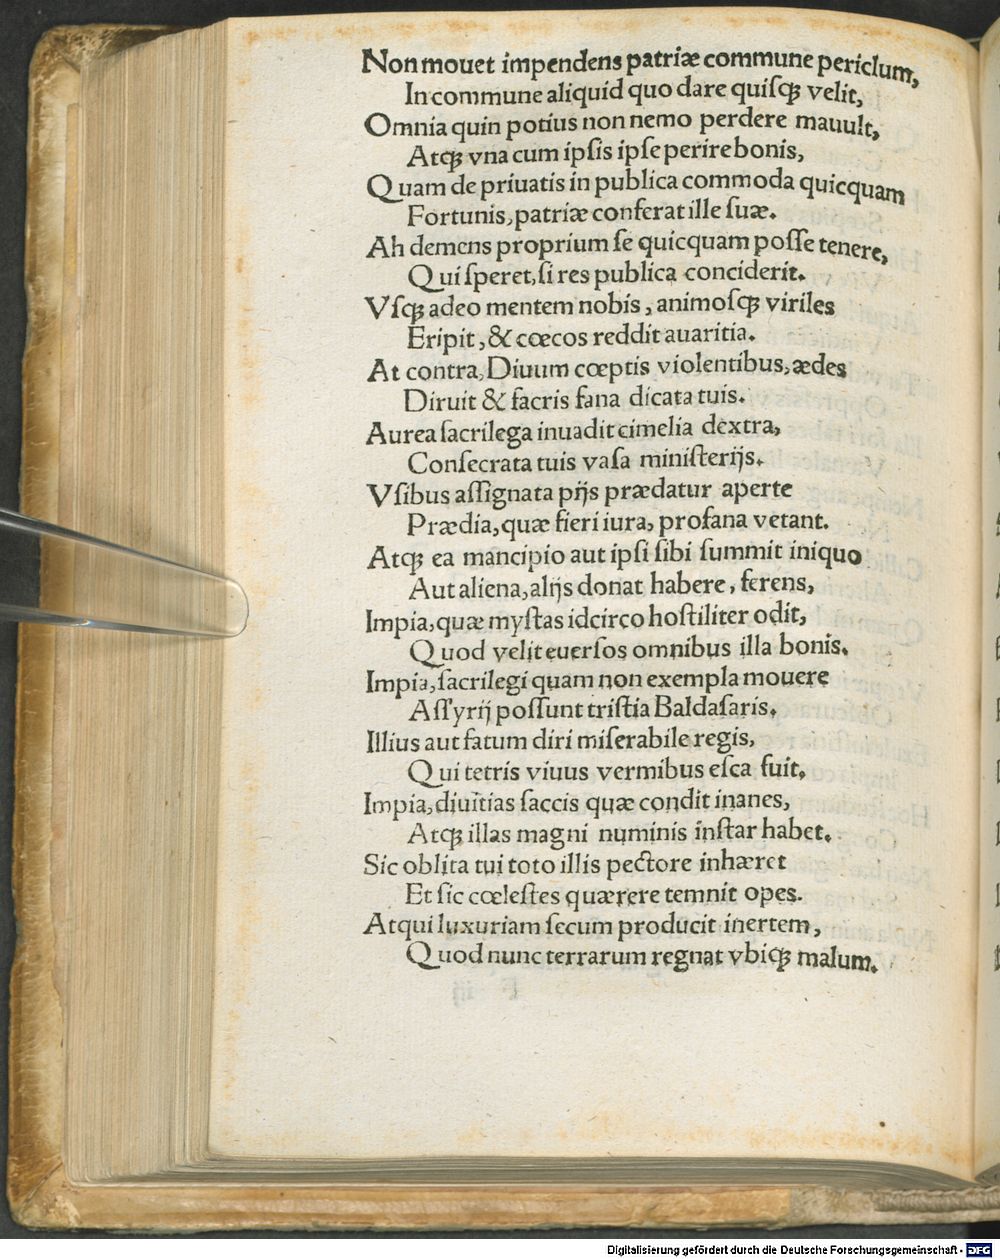 Non mouet impendens patriæ commune periclum,
In commune aliquid quo dare quiſqꝫ velit,
Omnia quin potius non nemo perdere mauult,
Atqꝫ vna cum ipſis ipſe perire bonis,
Quam de priuatis in publica commoda quicquam
Fortunis, patriæ conferat ille ſuæ.
Ah demens proprium ſe quicquam poſſe tenere,
Qui ſperet, ſi res publica conciderit.
Vſqꝫ adeo mentem nobis, animoſqꝫ viriles
Eripit, & cœcos reddit auaritia.
At contra, Diuum cœptis violentibus, ædes
Diruit & ſacris fana dicata tuis.
Aurea ſacrilega inuadit cimelia dextra,
Conſecrata tuis vaſa miniſterijs.
Vſibus aſſignata pijs prædatur aperte
Prædia, quæ fieri iura, profana vetant.
Atqꝫ ea mancipio aut ipſi ſibi ſummit iniquo
Aut aliena, alijs donat habere, ferens,
Impia, quæ myſtas idcirco hoſtiliter odit,
Quod velit euerſos omnibus illa bonis.
Impia, ſacrilegi quam non exempla mouere
Aſſyrij poſſunt triſtia Baldaſaris.
Illius aut fatum diri miſerabile regis,
Qui tetris viuus vermibus eſca fuit.
Impia, diuitias ſaccis quæ condit inanes,
Atqꝫ illas magni numinis inſtar habet.
Sic oblita tui toto illis pectore inhæret
Et ſic cœleſtes quærere temnit opes.
Atqui luxuriam ſecum producit inertem,
Quod nunc terrarum regnat vbiqꝫ malum.
Digitalisierung gefördert durch die Deutsche Forschungsgemeinschaft - DFG